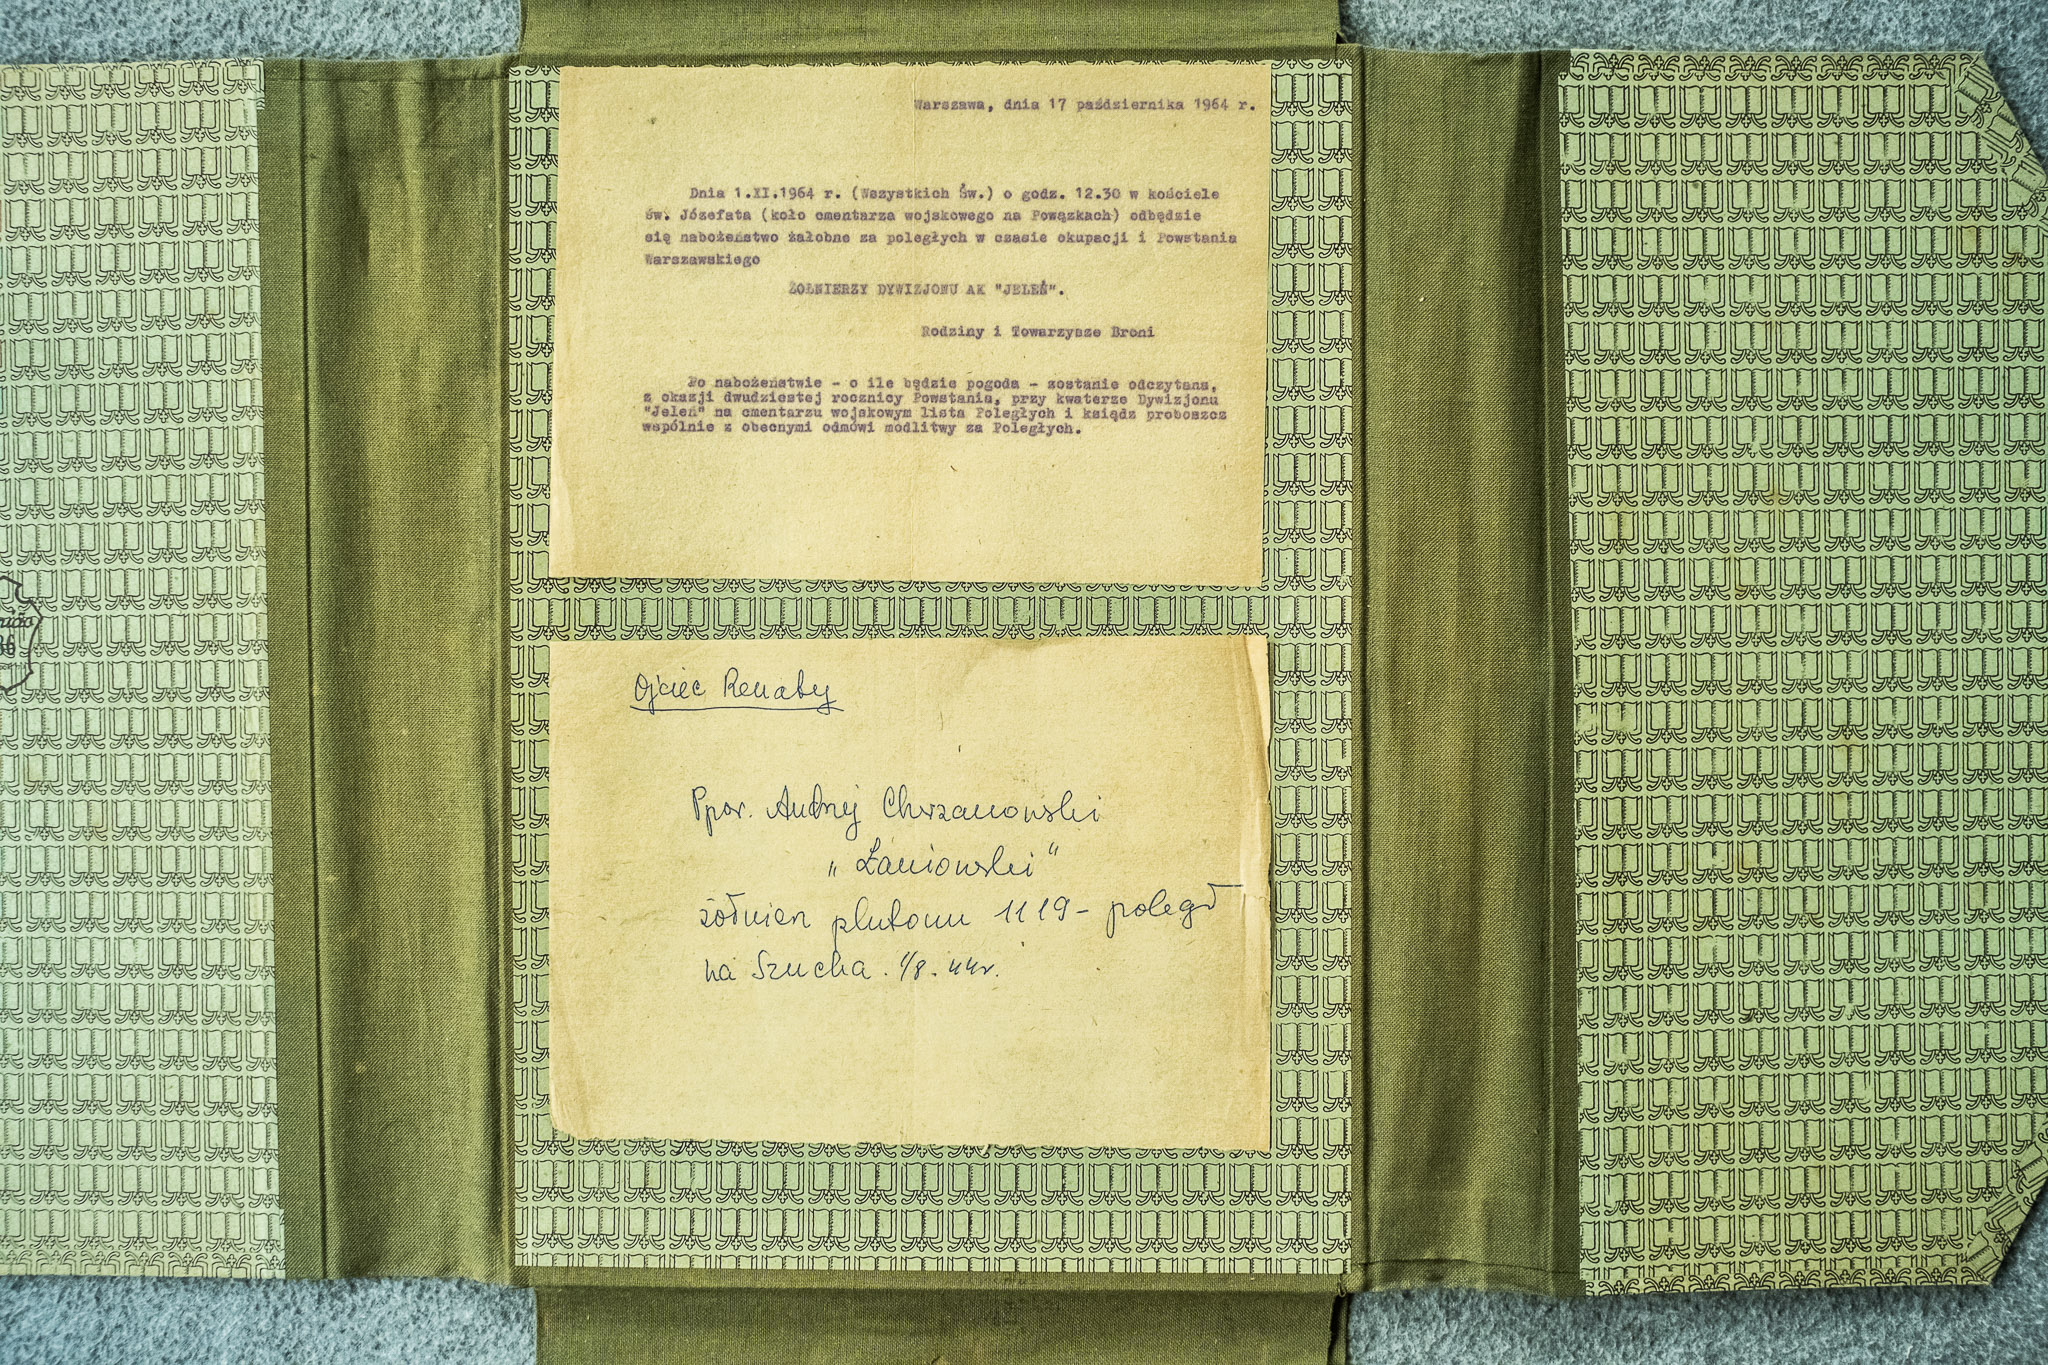 Warszawa, dnia 17 października 1964 r.
Dnia 1.XI.1964 r. (Wszystkich Św.) o godz. 12.30 w kościele
św. Józefata (koło cmentarza wojskowego na Powązkach) odbędzie
się nabożeństwo żałobne za poległych w czasie okupacji i Powstania
Warszawskiego
ŻOŁNIERZY DYWIZJONU AK "JELEŃ".
Rodziny i Towarzysze Broni
Po nabożeństwie - o ile będzie pogoda - zostanie odczytana,
z okazji dwudziestej rocznicy Powstania, przy kwaterze Dywizjonu
"Jeleń" na cmentarzu wojskowym lista Poległych i ksiądz proboszcz
wspólnie z obecnymi odmówi modlitwy za Poległych.
Ojciec Renaty
Ppor. Andrzej Chrzanowski
„Łaniowski"
żołnierz plutonu 1119 - poległ
na Szucha. 1/8. 44r.
36